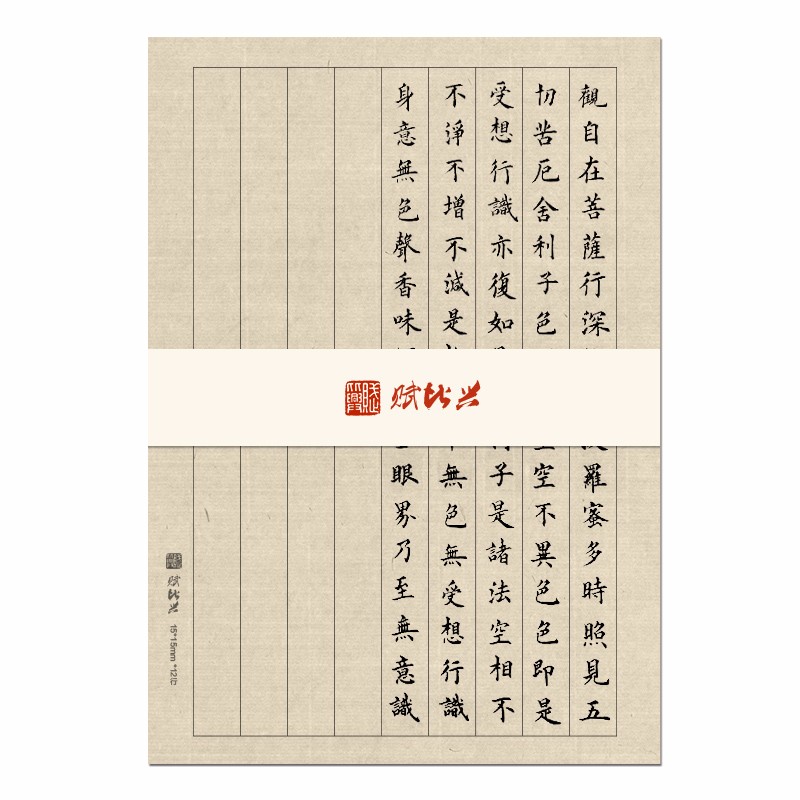 觀自在菩薩行深
羅蜜多時照見五
切苦厄舍利子色
空不異色色即是
受想行識亦復如
子是諸法空相不
不淨不增不減是
無色無受想行識
身意無色聲香味
眼界乃至無意識
赋比兴
赋比兴 15*15mm *12行